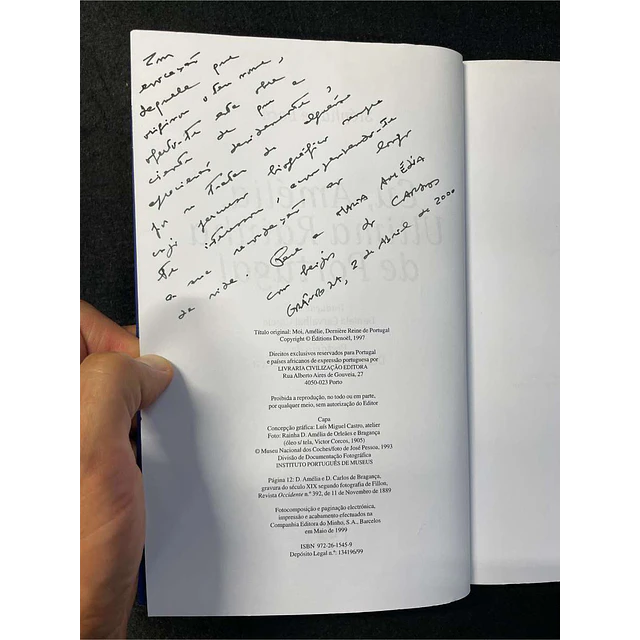 Em
evocação
daquele que
originou o teu nome,
oferto-te esta obra
ciente de que a
apreciarás devidamente,
por se tratar de alguém
cujo percurso biográfico sempre
te interessou,
a sua ao longo
da vida. Para a minha AMÉLIA
com beijos do CARLOS
2 de Abril de 2000
Título original: Moi, Amélie, Dernière Reine de Portugal
Copyright © Éditions Denoël, 1997
Direitos exclusivos reservados para Portugal
e países africanos de expressão portuguesa por
LIVRARIA CIVILIZAÇÃO EDITORA
Rua Alberto Aires de Gouveia, 27
4050-023 Porto
Proibida a reprodução, no todo ou em parte,
por qualquer meio, sem autorização do Editor
Capa
Concepção gráfica: Luís Miguel Castro, atelier
Foto: Rainha D. Amélia de Orleães e Bragança
(óleo s/ tela, Victor Corcos, 1905)
© Museu Nacional dos Coches/foto de José Pessoa, 1993
Divisão de Documentação Fotográfica
INSTITUTO PORTUGUÊS DE MUSEUS
Página 12: D. Amélia e D. Carlos de Bragança,
gravura do século XIX segundo fotografia de Fillon,
Revista Occidente n.º 392, de 11 de Novembro de 1889
Fotocomposição e paginação electrónica,
impressão e acabamento efectuados na
Companhia Editora do Minho, S.A., Barcelos
em Maio de 1999
ISBN 972-26-1545-9
Depósito Legal n.º: 134196/99